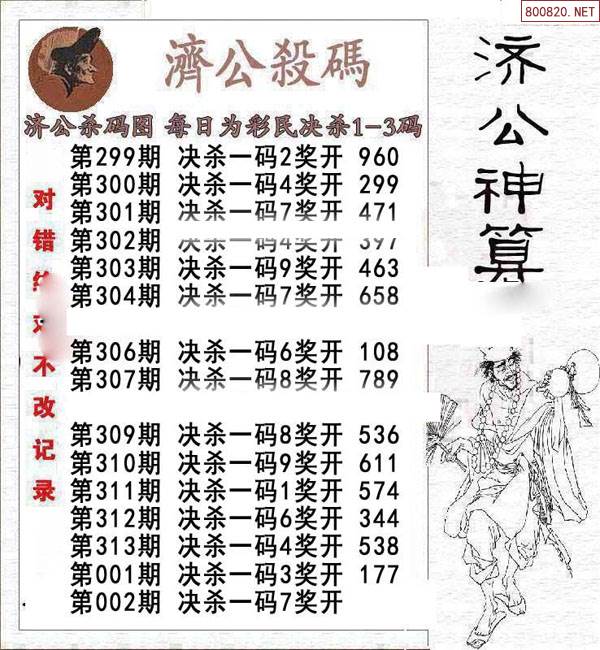 800820.NET
濟公殺碼
济公杀码图 每日为彩民决杀1-3码
第299期 决杀一码2奖开 960
第300期 决杀一码4奖开 299
第301期 决杀一码7奖开 471
第302期 决杀一码4奖开 397
第303期 决杀一码9奖开 463
第304期 决杀一码7奖开 658
第306期 决杀一码6奖开 108
第307期 决杀一码8奖开 789
第309期 决杀一码8奖开 536
第310期 决杀一码9奖开 611
第311期 决杀一码1奖开 574
第312期 决杀一码6奖开 344
第313期 决杀一码4奖开 538
第001期 决杀一码3奖开 177
第002期 决杀一码7奖开
对错
不改记录
济公神算